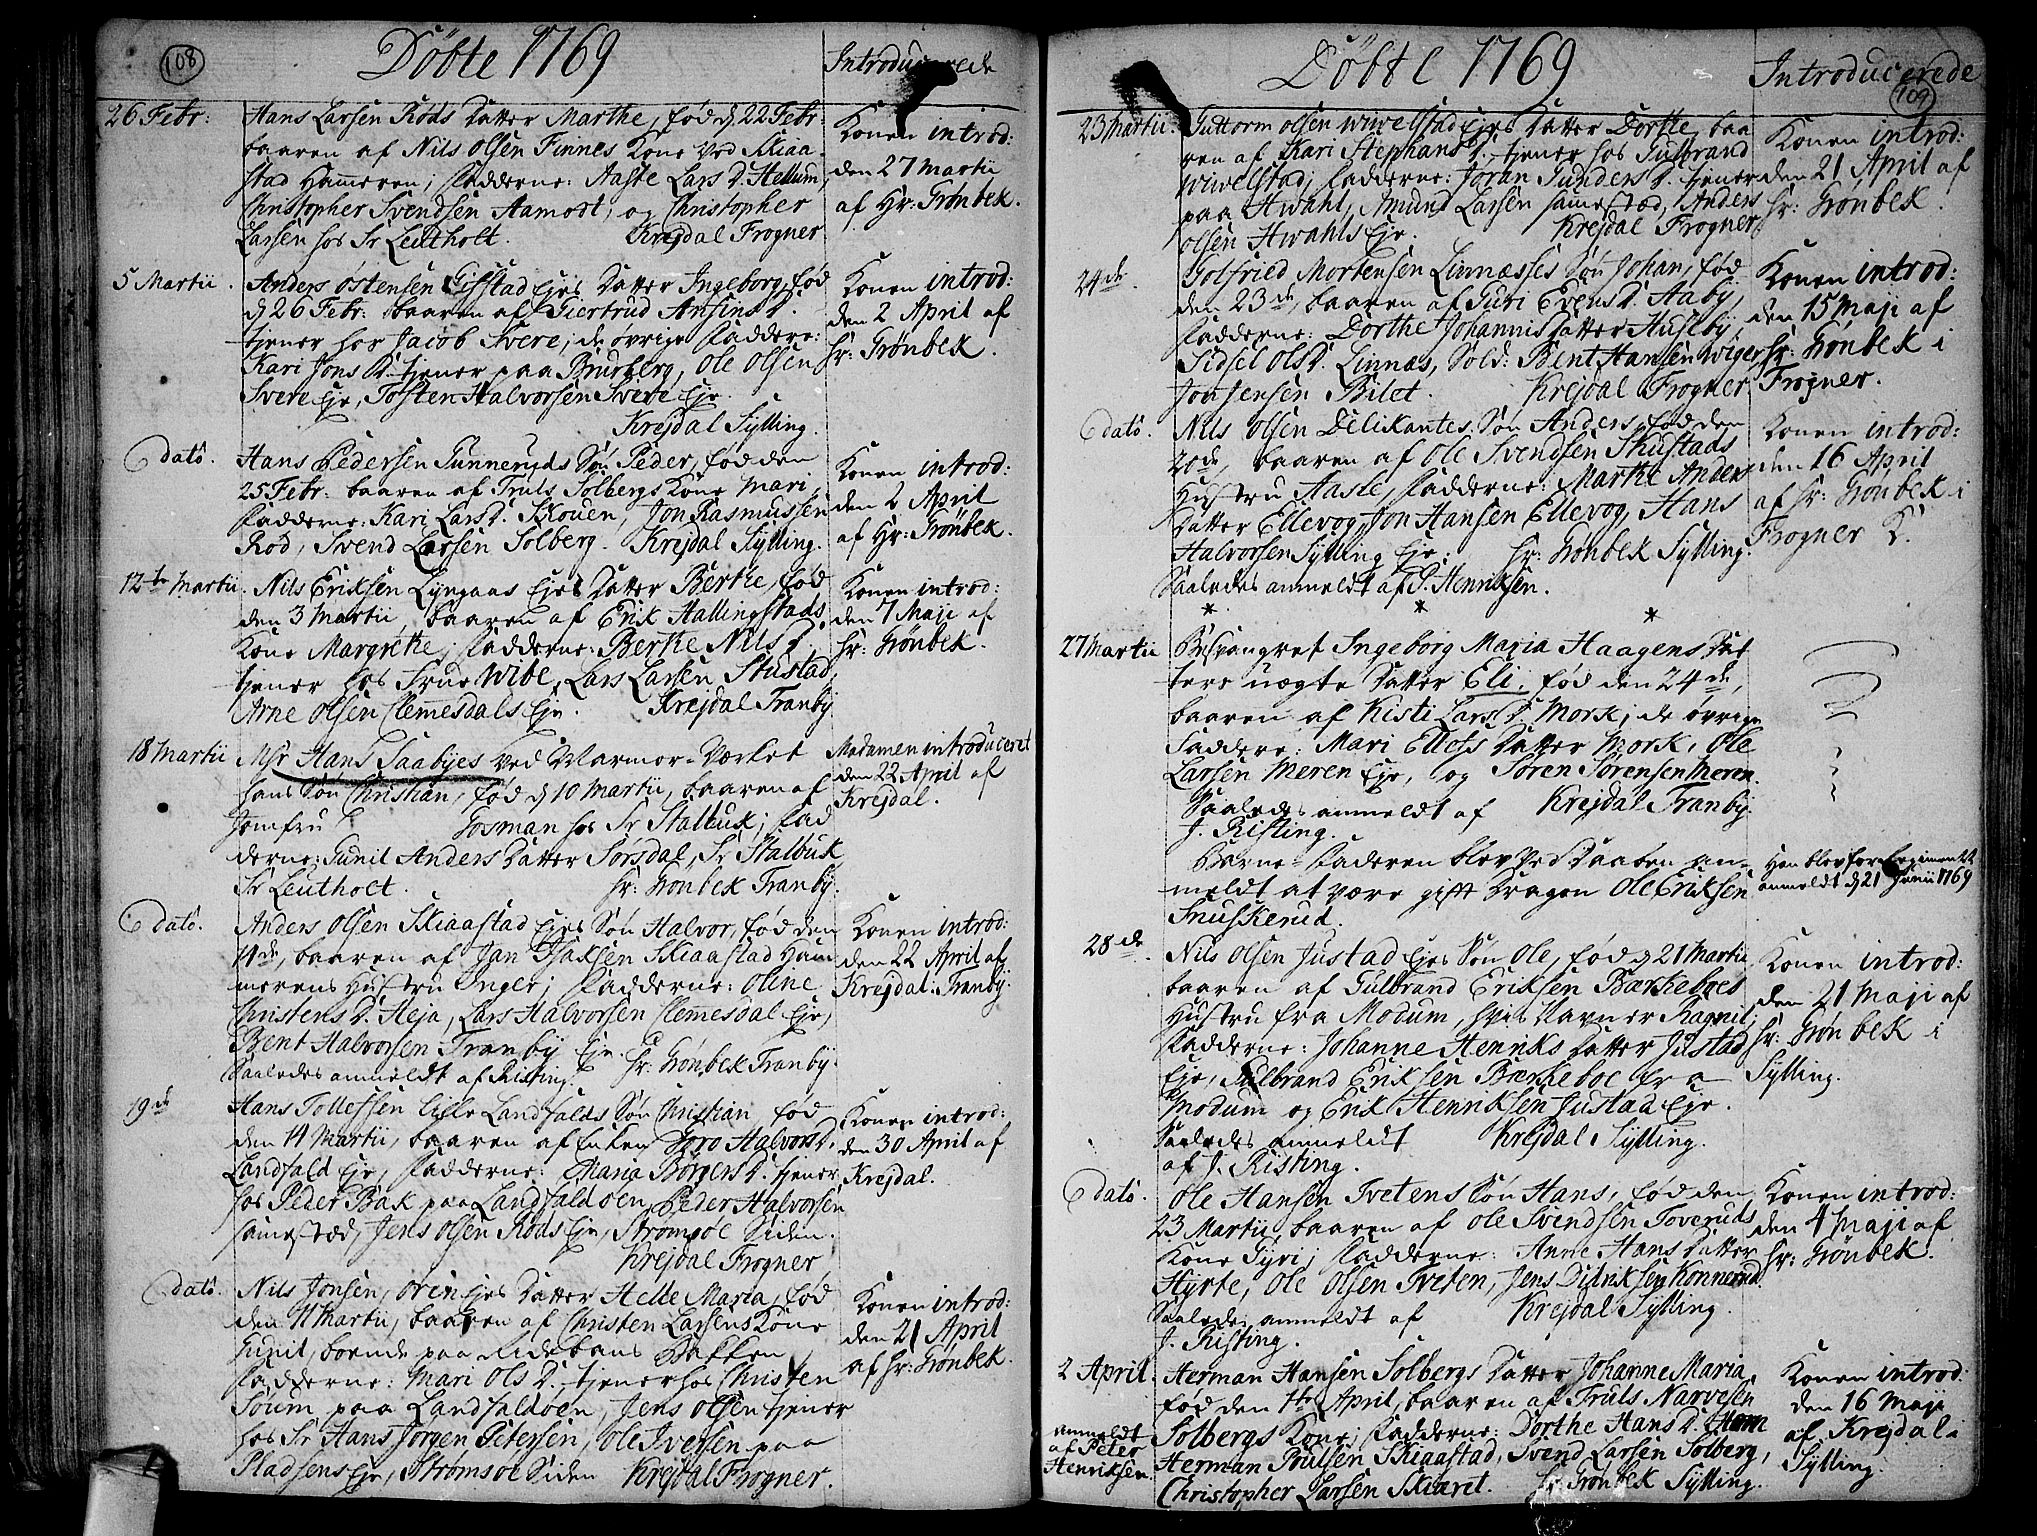 108
Döbte 1769
Introducerede
26 Febr:
Hans Larsen Röds Datter Marthe, fød d 22 Febr:
baaren af Nils Olsen Finnes Kone ved Skiaa
stad Hammeren; Fadderne: Aaste Lars D. Hellum,
Christopher Svendsen Aamodt, og Christopher
Larsen hos Sr Leutholt. Krejdal Frogner
Konen introd:
den 27 Martii
af Hr: Grønbek.
5 Martii.
Anders Östensen Gifstad Ejes Datter Ingeborg, fød
d 26 Febr: baaren af Giertrud Ansins D.
tjener hos Jacob Svere; de øvrige Faddere:
Kari Jons D. tjener paa Brurberg, Ole Olsen
Svere Eje, Tosten Halvorsen Svere Eje.
Krejdal Sylling.
Konen introd:
den 2 April af
Hr: Grönbek.
dato.
Hans Pedersen Gunneruds Sön Peder, fød den
25 Febr: baaren af Truls Solbergs Kone Mari,
Fadderne: Kari Lars D. Skouen, Jon Rasmussen
Röd, Svend Larsen Solberg. Krejdal Sylling.
Konen introd:
den 2 April
af Hr: Grönbek.
12te Martii.
Nils Eriksen Lyngaas Ejes Datter Berthe, fød
den 3 Martii, baaren af Erik Hallingstads
Kone Margrethe; Fadderne: Berthe Nils D.
tjener hos Frue Wibe, Lars Larsen Stustad,
Arne Olsen Clemmesdals Eje. Krejdal Tranby
Konen introd:
den 7 Maji af
Hr: Grönbek.
18 Martii
Msr Hans Saabyes ved Marmor-Værket
hans Sön Christian, fød d 10 Martii, baaren af
Jomfru C Gosman hos Sr Stalbuk; Fad
derne: Gunil Anders Datter Sörsdal, Sr Stalbuk,
Sr Leutholt. Hr: Grönbek Tranby.
Madamen introduceret
den 22 April af
Krejdal.
dato.
Anders Olsen Skiaastad Ejes Sön Halvor, fød den
14de, baaren af Jan Isaksen Skiaastad Ham
merens Hustru Inger; Fadderne: Oline
Christens D. Heja, Lars Halvorsen Clemesdal Eje,
Bent Halvorsen Tranby Eje. Hr: Grönbek Tranby.
Saaledes anmeldt af Risting.
Konen introd:
den 22 April af
Krejdal. Tranby.
19de
Hans Tollefsen lille Landfalds Sön Christian, fød
den 14 Martii, baaren af Enken Goro Halvors D.
Landfald Eje, Fadderne: Maria Börgers D. tjener
hos Peder Bak paa Landfaldöen, Peder Halvorsen
samestæd, Jens Olsen Röds Eje, Strömsöe Siden.
Krejdal Frogner
Konen introd:
den 30 April af
Krejdal.
dato.
Nils Jonsen, Oren Ejes Datter Helle Maria, fød
den 11 Martii, baaren af Christen Larsens Kone
Gunil, boende paa Ridebans Bakken,
Fadderne: Mari Ols D. tjener hos Christen
Söum paa Landfaldöen, Jens Olsen tjener
hos Sr Hans Jörgen Petersen, Ole Iversen paa
Pladsens Eje, Strömsöe Siden Krejdal Frogner.
Konen introd:
den 21 April
af Hr: Grönbek.
Döbte 1769
Introducerede
109
23 Martii.
Guttorm Olsen Wivelstad Ejes Datter Dorthe, baa
ren af Kari Stephans D. tjener hos Gulbrand
Wivelstad; Fadderne: Jöran Gunders D. tjener
paa Hwahl, Amund Larsen samestæd, Anders
Olsen Hwahls Eje. Krejdal Frogner
Konen introd:
den 21 April af
Hr: Grönbek.
24de.
Gotfried Mortensen Linnæsses Sön Johan, fød
den 23de, baaren af Guri Evens D. Aaby,
Fadderne: Dorthe Johannis Datter Huseby,
Sidsel Ols D. Linnæs, Sold: Bent Hansen Wiger,
Jon Jensen Bilet. Krejdal Frogner
Konen introd:
den 15 Maji af
Hr: Grönbek i
Frogner.
dato.
Nils Olsen Delikantes Sön Anders, fød den
20de, baaren af Ole Svendsen Skustads
Hustru Aaste, Fadderne: Marthe Anders
Datter Ellevog, Jon Hansen Ellevog, Hans
Halvorsen Sylling Eje. Hr: Grönbek Sylling.
Saaledes anmeldt af P. Henriksen.
Konen introd:
den 16 April
af Hr: Grönbek i
Frogner K.
* * *
27 Martii
Besvangret Ingeborg Maria Haagens Dat
ters uægte Datter Eli, fød den 24de,
baaren af Kisti Lars D. Mork; de øvrige
Faddere: Mari Ellefs Datter Mork, Ole
Larsen Meren Eje, og Sören Sörensen Meren.
Saaledes anmeldt af Krejdal Tranby.
J. Risting.
Barne-Faderen blev ved Daaben an-
meldt at være gifft Dragon Ole Eriksen
Snuskerud.
Han blev for Regimentz
anmeldt d 21 Junii 1769
28de.
Nils Olsen Justad Ejes Sön Ole, fød d 21 Martii
baaren af Gulbrand Eriksen Bærkeboes
Hustru fra Modum, hvis Navn er Ragnil;
Fadderne: Johanne Henriks Datter Justad
Eje, Gulbrand Eriksen Bærkeboe fra
Modum og Erik Henriksen Justad Eje.
Saaledes anmeldt Krejdal Sylling.
af J. Risting.
Konen introd:
den 21 Maji af
Hr: Grönbek i
Sylling.
dato.
Ole Hansen Tvetens Sön Hans, fød den
23 Martii, baaren af Ole Svendsen Toveruds
Kone Gyri; Fadderne: Anne Hans Datter
Hyrte, Ole Olsen Tveten, Jens Didriksen Konnerud
Saaledes anmeldt af Krejdal Sylling.
J. Risting.
Konen introd:
den 4 Maji af
Hr: Grönbek.
2 April.
Herman Hansen Solbergs Datter Johanne Maria,
fød den 1te April, baaren af Truls Narvesen
Solbergs Kone; Fadderne: Dorthe Hans D. Hørn
Herman Poulsen Skiaastad, Svend Larsen Solberg,
Christopher Larsen Skiæret. Hr Grönbek Sylling.
anmeldt
af Peter
Henriksen.
Konen introd:
den 16 Maji
af Krejdal
Sylling.